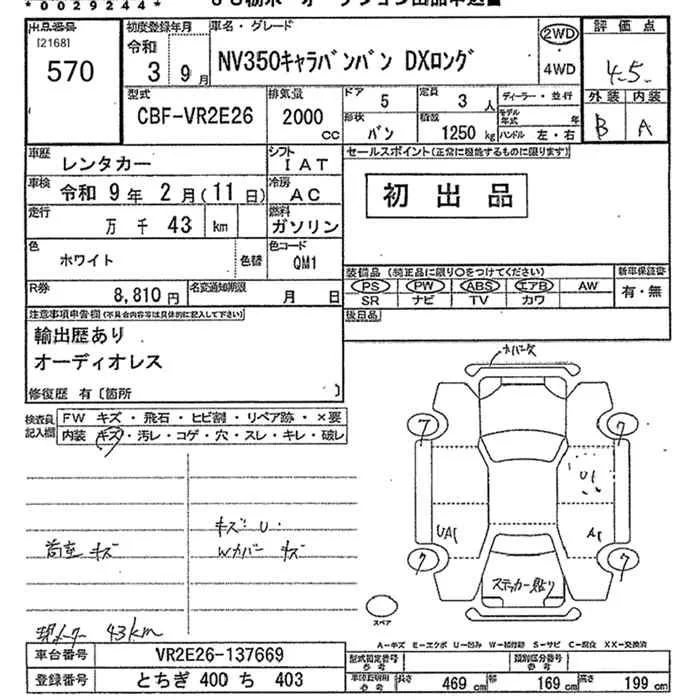 *0029244**
出品番号
[2168]
570
初度登録年月
令和
3 9月
車名・グレード
NV350キャラバンバン DXロング
2WD
4WD
評価点
4.5
外装 内装
B A
型式
CBF-VR2E26
排気量
2000
CC
ドア
5
定員
3人
ディーラー・並行
モデル年式 年
形状
バン
積載
1250kg
ハンドル 左・右
車歴
レンタカー
シフト
IAT
セールスポイント(正常に機能するものに限ります)
初出品
車検
令和 9年 2月(11日)
冷房
AC
走行
万 千 43 km
燃料
ガソリン
色
ホワイト
色替
色コード
QM1
装備品(純正品に限り○をつけてください)
新車保証書
PS PW ABS エアB AW
SR ナビ TV カワ
有・無
R券
8,810円
名変通知期限
月 日
後日品
注意事項申告欄(不具合内容等は具体的に記入して下さい)
輸出歴あり
オーディオレス
修復歴 有〔箇所 〕
検査員記入欄
FW キズ・飛石・ヒビ割・リペア跡・×要
内装 キズ・汚レ・コゲ・穴・スレ・キレ・破レ
キズ U.
荷室 キズ
Wカバー キズ
現メーター 43km
ナンバー欠
7 7
U1
UA1 A1
7 7
ステッカー貼り
スペア
A-キズ E-エクボ U-凹み W-補修跡 S-サビ C-腐食 XX-交換済
車台番号
VR2E26-137669
型式指定番号
参考
類別区分番号
参考
登録番号
とちぎ 400 ち 403
参考
長さ
469cm
幅
169cm
高さ
199cm